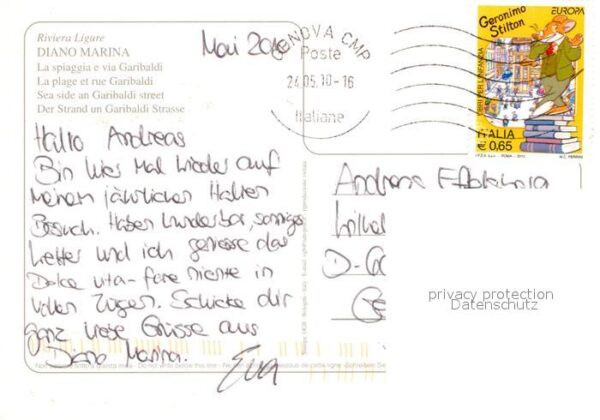 Riviera Ligure
DIANO MARINA
La spiaggia e via Garibaldi
La plage et rue Garibaldi
Sea side an Garibaldi street
Der Strand un Garibaldi Strasse
Mai 2010
GENOVA CMP
Poste
24.05.10-16
Italiane
Geronimo
Stilton
EUROPA
LIBRI PER L'INFANZIA
ITALIA
€ 0,65
Hallo Andreas
Bin hier Mal wieder auf
meinem jährlichen Italien
Besuch. Haben wunderbar, sonniges
Wetter und ich geniesse das
Dolce vita - fare niente in
vollen Zügen. Schicke dir
ganz liebe Grüsse aus
Diano Marina.
Eva
Andreas
D-
privacy protection
Datenschutz